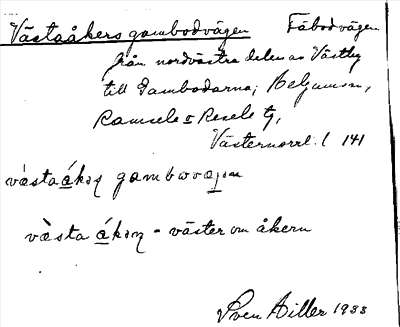 Västaåkers gambodvägen Fäbodvägen
från nordvästra delen av Västby
till Gambodarna,
Ramsele o Resele tg,
Västernorrl. l 141
västa
västa - väster om åkern
Sven Hiller 1933